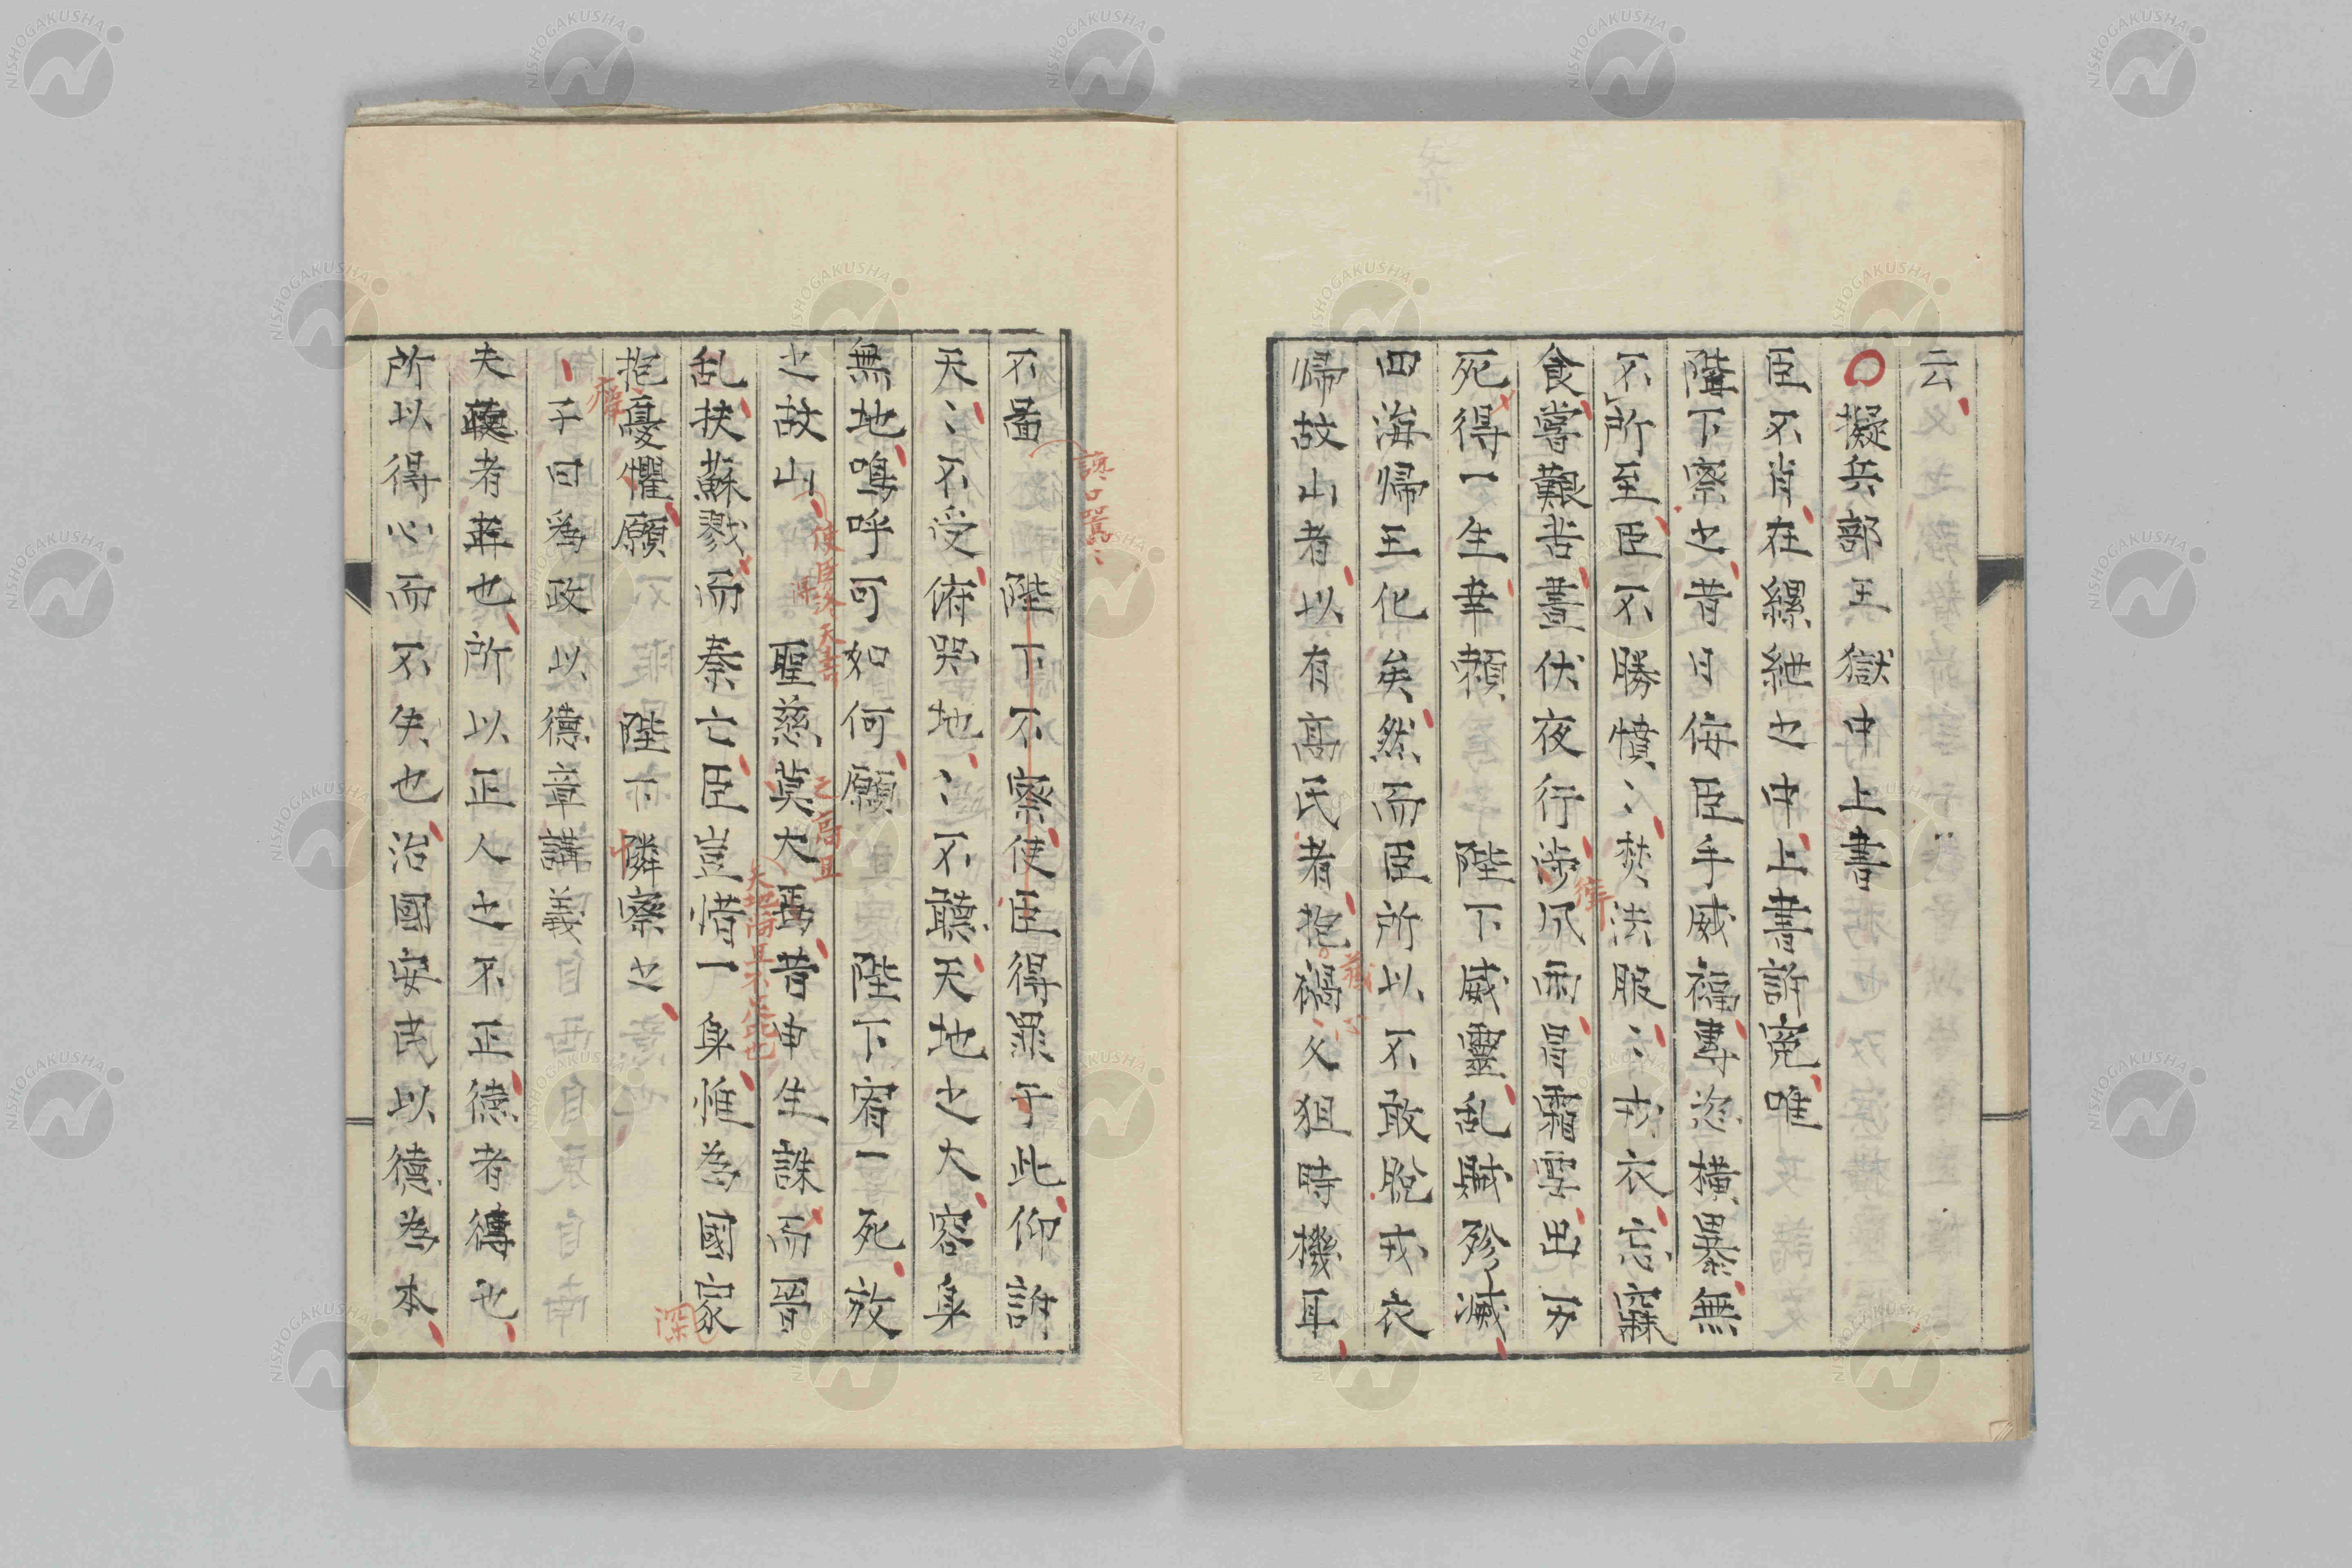 云
擬兵部王獄中上書
臣不肖在縲紲之中上書訴寃唯
陛下察之昔日侮臣手威福專恣橫暴無
不所至臣不勝憤々焚洪服々戎衣忘寢
食嘗艱苦晝伏夜行涉風雨冒霜雪出万
死得一生幸賴 陛下威靈乱賊殄滅
四海帰王化矣然而臣所以不敢脫戎衣
帰故山者以有高氏者抱禍父狙時機耳
不啚 陛下不察使臣得罪于此仰訴
天々不受俯哭地々不聽天地之大容身
無地嗚呼可如何願 陛下宥一死放
之故山 聖慈莫大焉昔申生誅而晉
乱扶蘇戮而秦亡臣豈惜一身惟為國家
抱憂懼願 陛下憐察之
子曰爲政以德章講義
夫政者正也所以正人之不正德者得也
所以得心而不失也治國安民以德為本